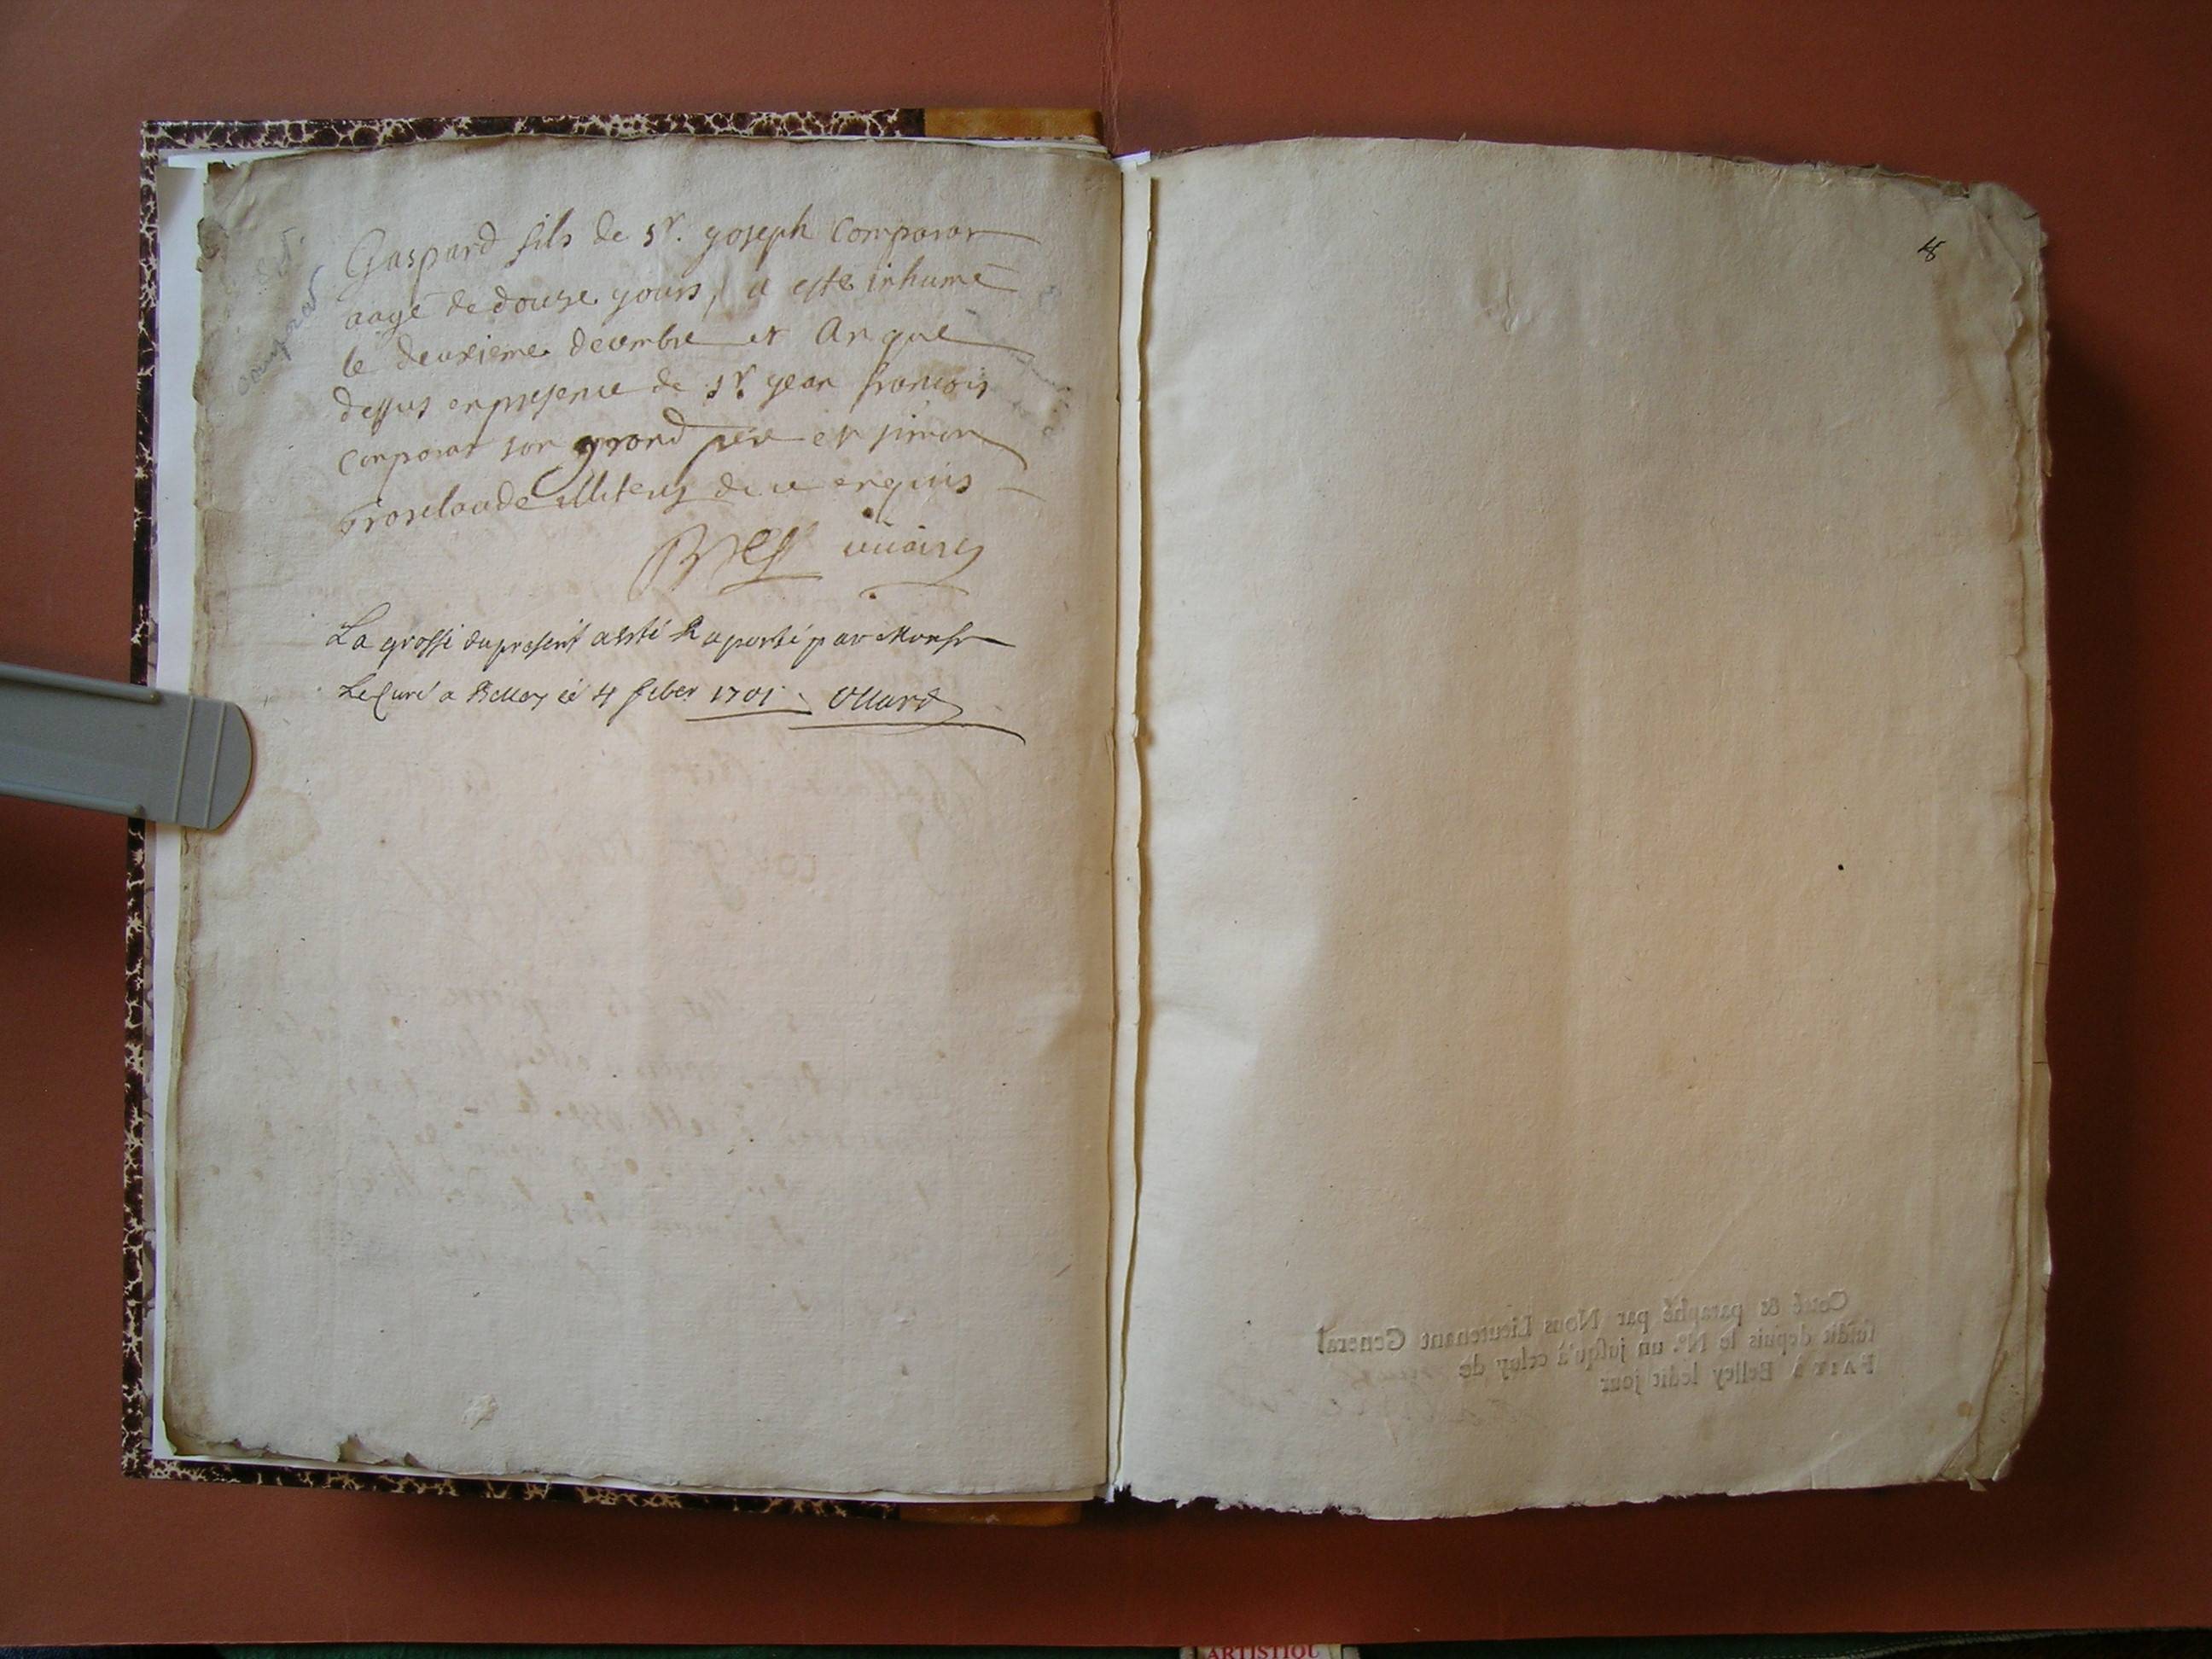 Gaspard fils de sr. yoseph Comparat
aagé de douze yours, a esté inhumé
le deuxieme decembre et An que
dessus en presence de sr. yean francois
Comparat son grand pere et simon
illiterés de ce enquis
vicaire
La grosse du present a esté Raporté par Monsr
Le Curé a Belley ce 4 feber 1701. Ollard
comparat
Coté & paraphé par Nous Lieutenant General
susdit depuis le N°. un jusqu'à celuy de
FAIT à Belley ledit jour
ARTISTIQU